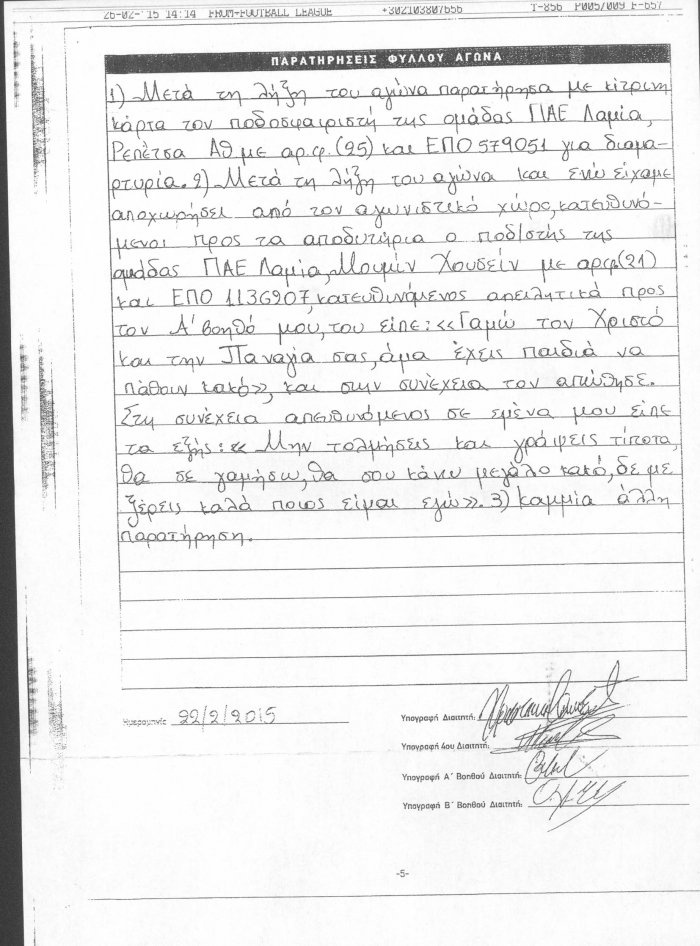 26-02-'15 14:14 FROM-FOOTBALL LEAGUE +302103807656 T-856 P005/009 F-657
ΠΑΡΑΤΗΡΗΣΕΙΣ ΦΥΛΛΟΥ ΑΓΩΝΑ
1) Μετά τη λήξη του αγώνα παρατήρησα με κίτρινη
κάρτα τον ποδοσφαιριστή της ομάδας ΠΑΕ Λαμία,
Ρεπέτσα Αθ με αρ.φ. (25) και ΕΠΟ 579051 για διαμα-
ρτυρία. 2) Μετά τη λήξη του αγώνα και ενώ είχαμε
αποχωρήσει από τον αγωνιστικό χώρο, κατευθυνό-
μενοι προς τα αποδυτήρια ο ποδ/στής της
ομάδας ΠΑΕ Λαμία, Μουμίν Χουσεΐν με αρ.φ(21)
και ΕΠΟ 1136907, κατευθυνόμενος απειλητικά προς
τον Α' βοηθό μου, του είπε: «Γαμώ τον Χριστό
και την Παναγία σας, άμα έχεις παιδιά να
πάθουν κακό», και στην συνέχεια τον απώθησε.
Στη συνέχεια απευθυνόμενος σε εμένα μου είπε
τα εξής: « Μην τολμήσεις και γράψεις τίποτα,
θα σε γαμήσω, θα σου κάνω μεγάλο κακό, δε με
ξέρεις καλά ποιος είμαι εγώ». 3) Καμμία άλλη
παρατήρηση.
Ημερομηνία 22/2/2015
Υπογραφή Διαιτητή:
Υπογραφή 4ου Διαιτητή:
Υπογραφή Α΄ Βοηθού Διαιτητή:
Υπογραφή Β΄ Βοηθού Διαιτητή:
-5-